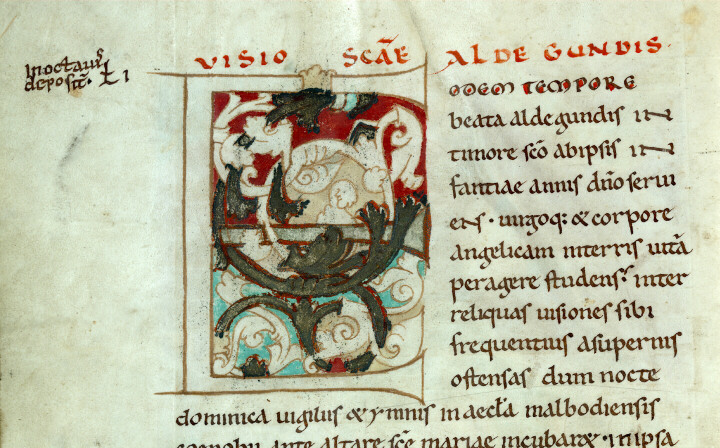 in octauis
deposit̄. L͞ I
VISIO SCĀE ALDEGUNDIS.
EODEM TEMPORE
beata aldegundis IN
timore sc̄o ab ipsis IN
fantiae annis dn̄o serui
ENS. uirgoq: & corpore
angelicam in terris uitā
peragere studens. inter
reliquas uisiones sibi
frequentius a supernis
ostensas dum nocte
dominica uigiliis & ymnis in aecl̄a malbodiensis
ante altare sc̄e mariae incubar& . in ipsa